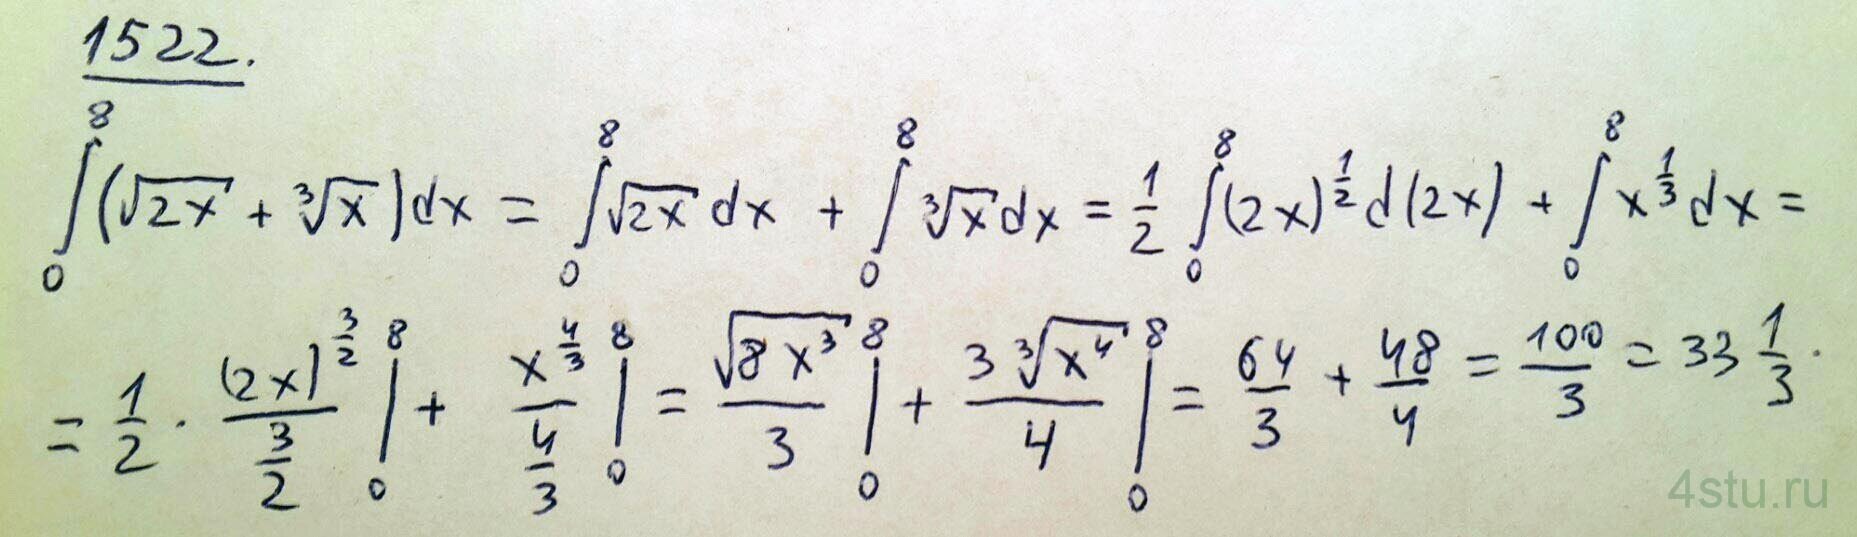 1522.
∫₀⁸ (√(2x) + ∛x) dx = ∫₀⁸ √(2x) dx + ∫₀⁸ ∛x dx = 1/2 ∫₀⁸ (2x)^(1/2) d(2x) + ∫₀⁸ x^(1/3) dx =
= 1/2 · (2x)^(3/2)/(3/2) |₀⁸ + x^(4/3)/(4/3) |₀⁸ = √(8x³)/3 |₀⁸ + 3∛(x⁴)/4 |₀⁸ = 64/3 + 48/4 = 100/3 = 33 1/3.
4stu.ru